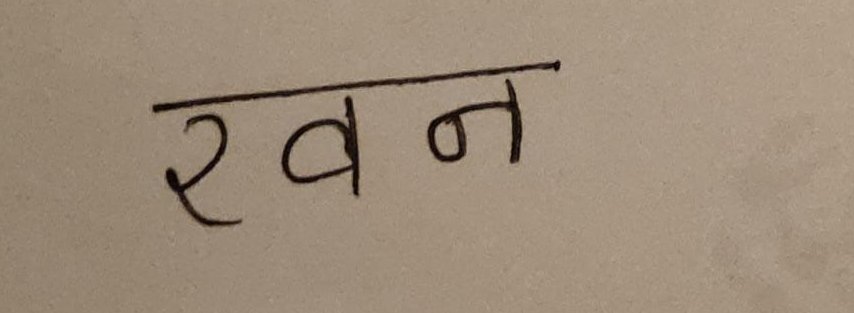 रवन